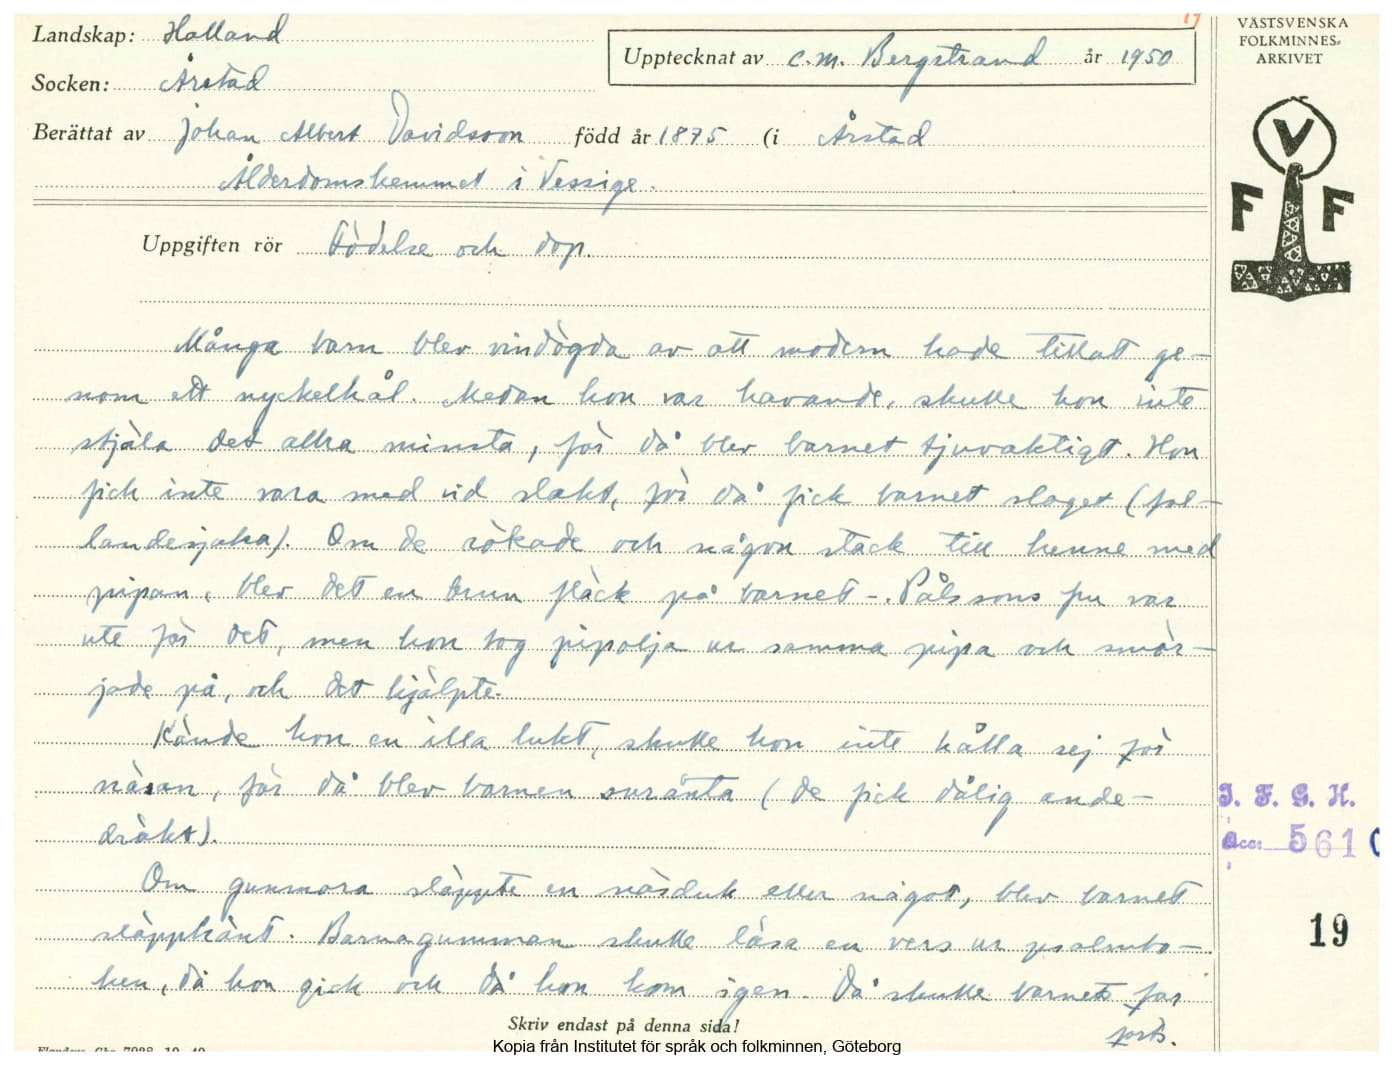 Landskap: Halland
Socken: Årstad
Upptecknat av C. M. Bergstrand år 1950
Berättat av Johan Albert Davidsson född år 1875 (i Årstad
Ålderdomshemmet i Vessige.
Uppgiften rör Födelse och dop.
Många barn blev vindögda av att modern hade tittat ge-
nom ett nyckelhål. Medan hon var havande, skulle hon inte
stjäla det allra minsta, för då blev barnet tjuvaktigt. Hon
fick inte vara med vid slakt, för då fick barnet slaget (fal-
landesjuka). Om de rökade och någon stack till henne med
pipan, blev det en brun fläck på barnet -. Pålssons fru var
ute för det, men hon tog pipolja ur samma pipa och smör-
jade på, och det hjälpte.
Kände hon en illa lukt, skulle hon inte hålla sej för
näsan, för då blev barnen suränta (de fick dålig ande-
dräkt).
Om gummora släppte en näsduk eller något, blev barnet
släpphänt. Barnagumman skulle läsa en vers ur psalmbo-
ken, då hon gick och då hon kom igen. Då skulle barnets far
forts.
Skriv endast på denna sida!
Kopia från Institutet för språk och folkminnen, Göteborg
VÄSTSVENSKA
FOLKMINNES-
ARKIVET
V
F F
I. F. G. H.
Acc: 561
19